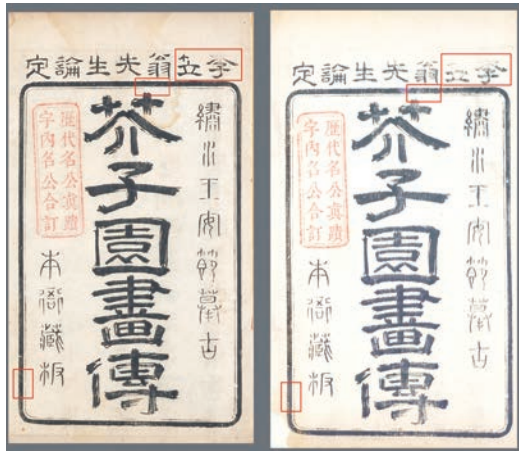 李笠翁先生論定
繡水王安節摹古
芥子園畫傳
歷代名公眞蹟
宇內名公合訂
本衙藏板
李笠翁先生論定
繡水王安節摹古
芥子園畫傳
歷代名公眞蹟
宇內名公合訂
本衙藏板